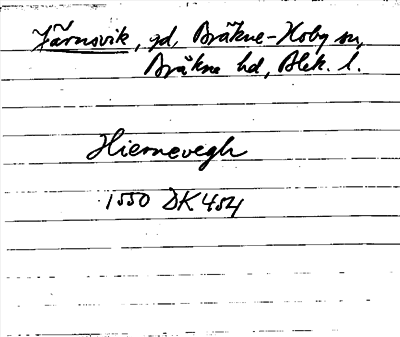 Järnavik, gd, Bräkne-Hoby sn,
Bräkne hd, Blek. l.
Hiernevegh
1550 DK 454